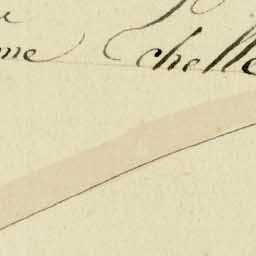 me Echelle